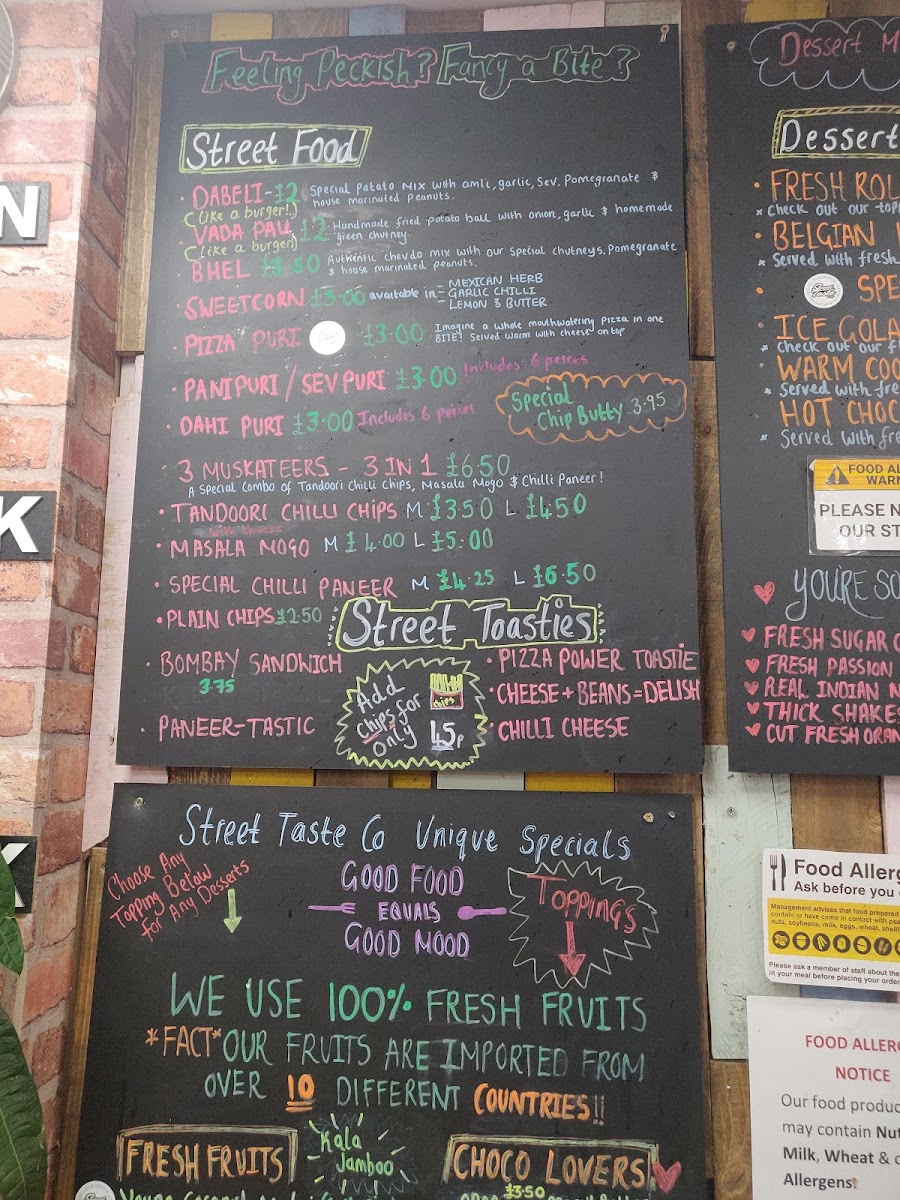 Feeling Peckish? Fancy a Bite?
Street Food
DABELI-£2 Special Potato MIX with amli, garlic, Sev. Pomegranate &
house marinated Peanuts.
(Like a burger!)
VADA PAU £2 Handmade fried potato ball with onion, garlic & homemade
green chutney.
(Like a burger)
BHEL £3.50 Authentic chevdo mix with our Special chutneys. Pomegranate
& house marinated peanuts.
SWEETCORN £3.00 available in:- MEXICAN HERB
- GARLIC CHILLI
LEMON & BUTTER
PIZZA PURI £3.00 Imagine a whole mouthwatering Pizza in one
BITE! Served warm with cheese on top
PANIPURI / SEVPURI £3.00 Includes 6 peices
DAHI PURI £3.00 Includes 6 peices
Special
Chip Butty 3.95
3 MUSKATEERS - 3 IN 1 £6.50
A Special Combo of Tandoori Chilli Chips, Masala Mogo & Chilli Paneer!
TANDOORI CHILLI CHIPS M £3.50 L £4.50
MASALA MOGO M £4.00 L £5.00
SPECIAL CHILLI PANEER M £4.25 L £6.50
PLAIN CHIPS £2.50
Street Toasties
BOMBAY SANDWICH
3.75
PANEER-TASTIC
Add
Chips for
Only 45p
chips
PIZZA POWER TOASTIE
CHEESE + BEANS = DELISH
CHILLI CHEESE
Street Taste Co Unique Specials
Choose Any
Topping Below
for Any Desserts
GOOD FOOD
EQUALS
GOOD MOOD
TOPPING'S
WE USE 100% FRESH FRUITS
*FACT* OUR FRUITS ARE IMPORTED FROM
OVER 10 DIFFERENT COUNTRIES!!
FRESH FRUITS
Kala
Jamboo
CHOCO LOVERS
£3.50
Dessert M
Dessert
FRESH ROL
* Check out our top
BELGIAN
* Served with fresh
SPE
ICE GOLA
* Check out our f
WARM COO
* Served with fre
HOT CHOC
* Served with fre
FOOD AL
WARN
PLEASE N
OUR ST
YOU'RE SO
FRESH SUGAR C
FRESH PASSION
REAL INDIAN N
THICK SHAKES
CUT FRESH ORAN
Food Allerg
Ask before you
Management advises that food prepared
contain or have come in contact with pea
nuts, soybeans, milk, eggs, wheat, shellf
Please ask a member of staff about the
in your meal before placing your order
FOOD ALLERG
NOTICE
Our food produc
may contain Nut
Milk, Wheat & o
Allergens
N
K